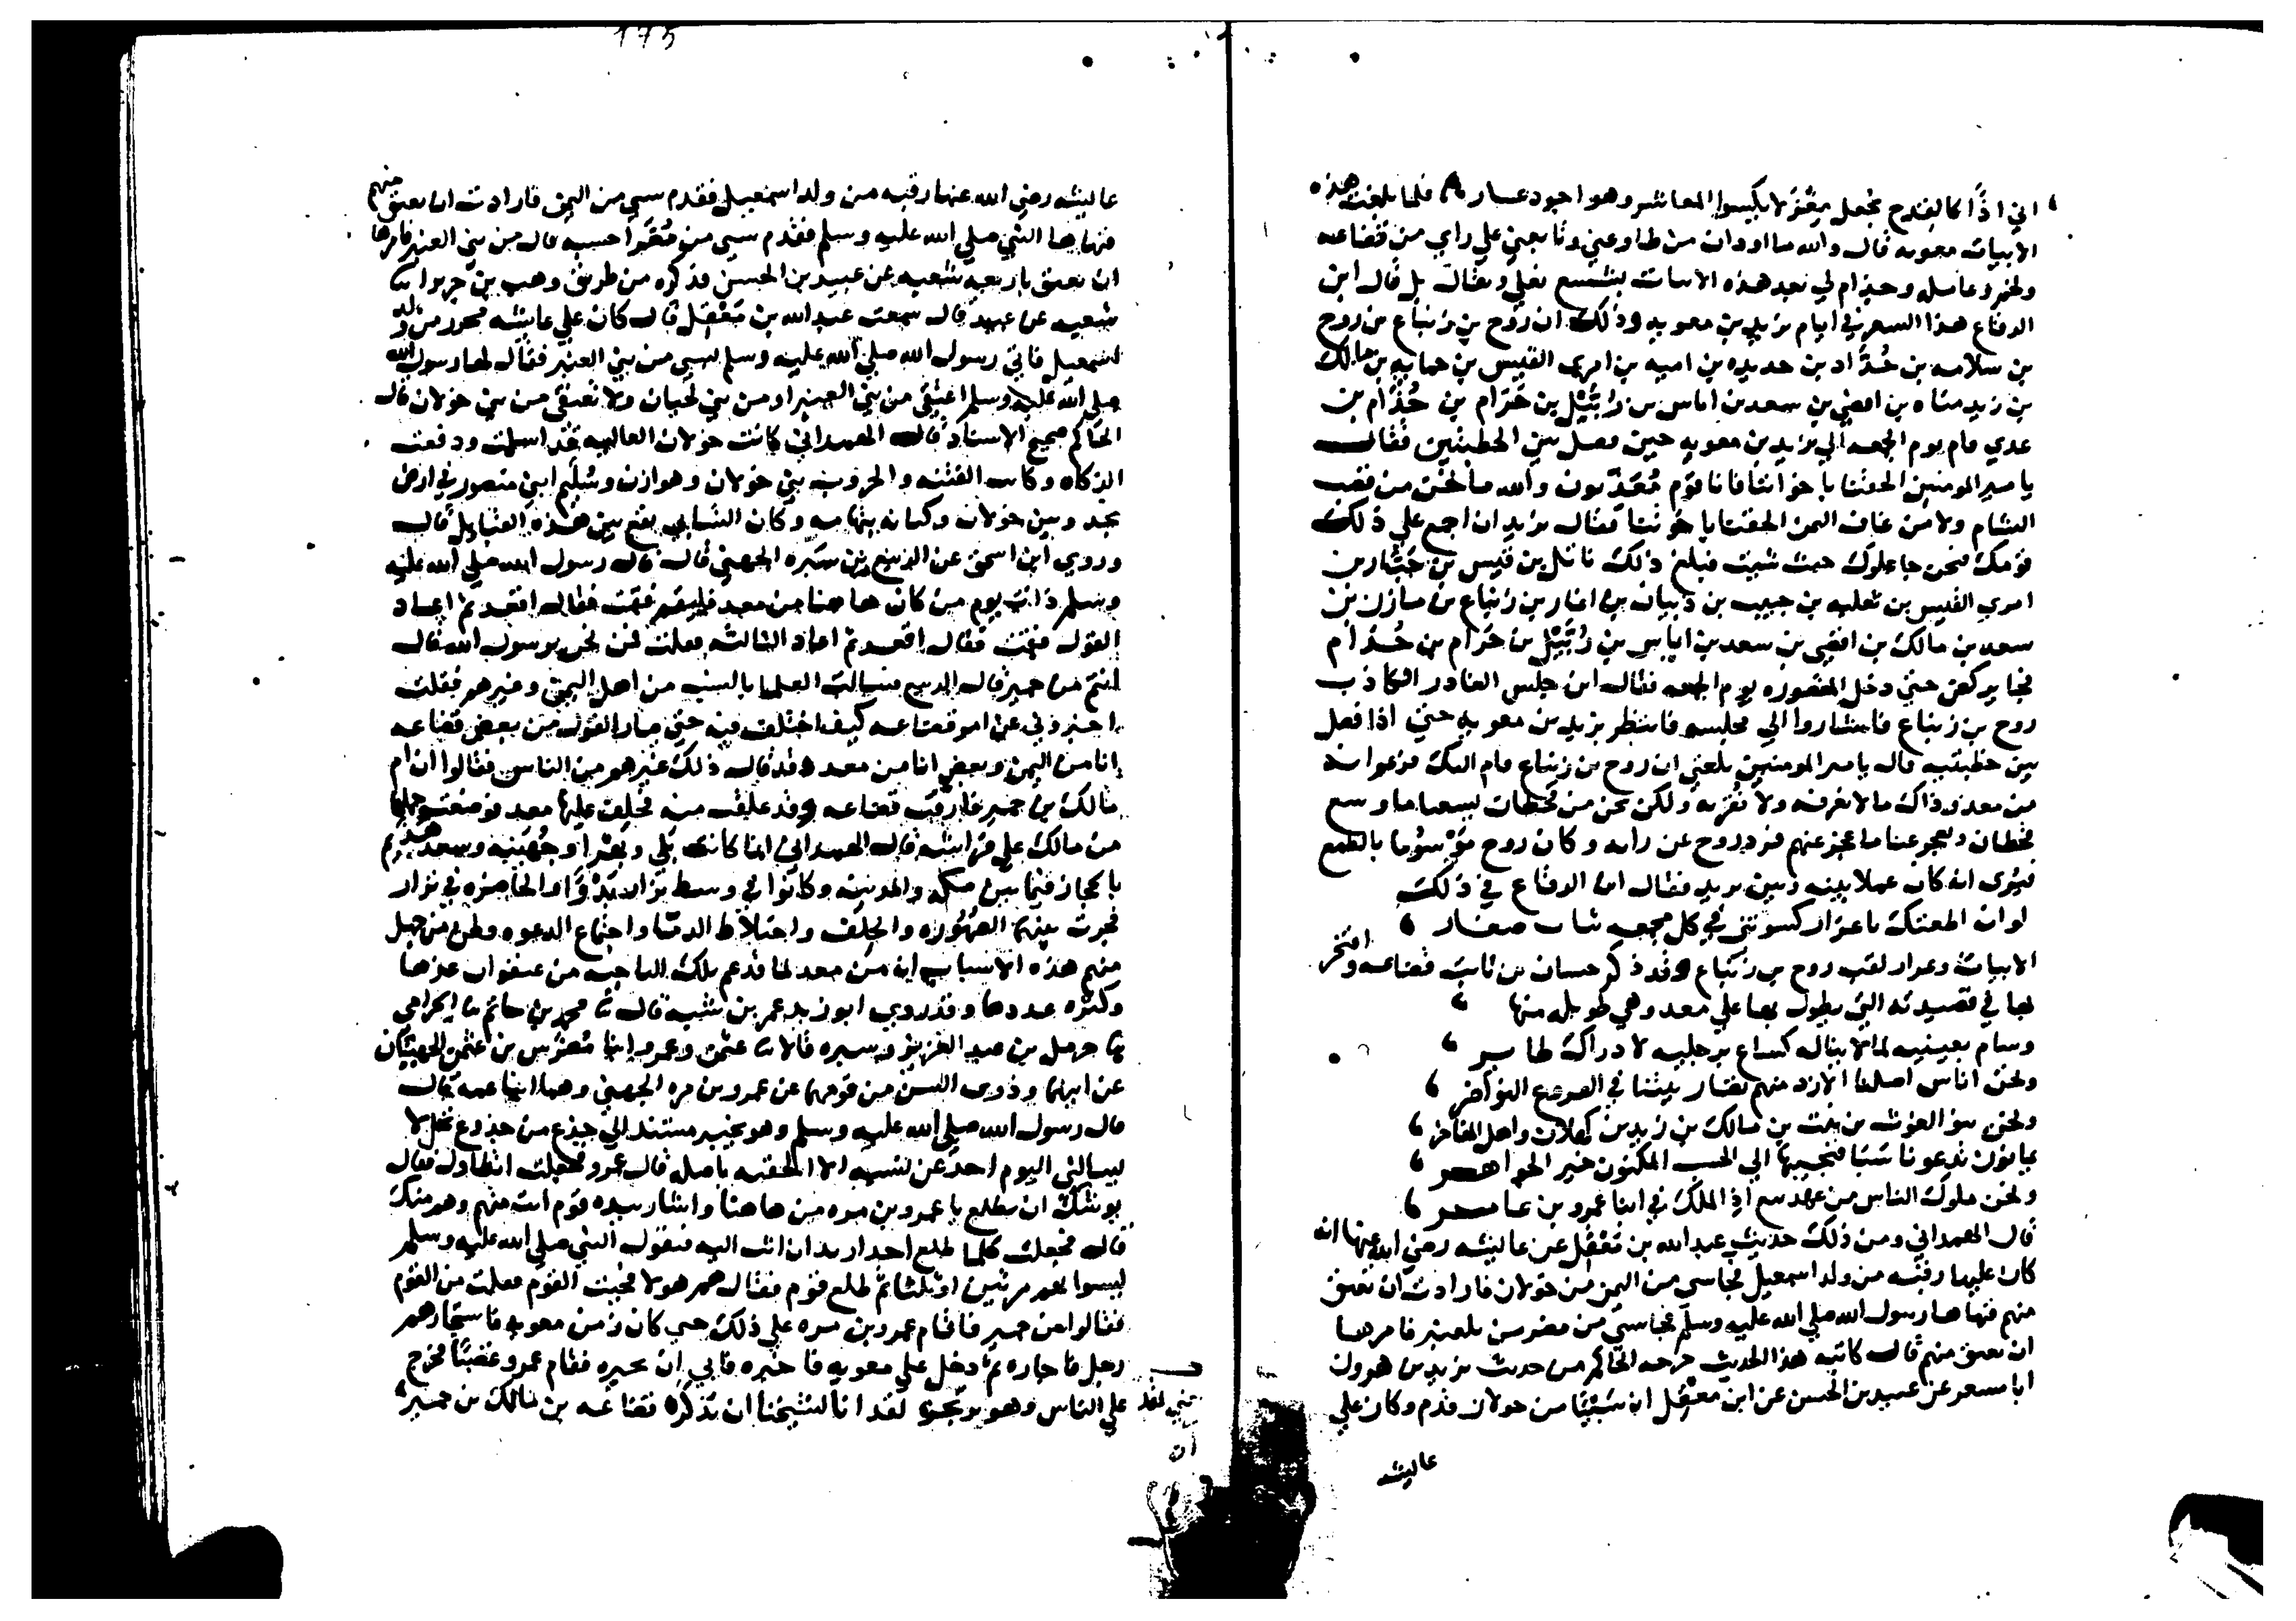 اني اذًا كالقدح يجعل معقر لا يكيسوا المعاشر وهو اجود عسار فلما بلغت هذه
الابيات معويه قال والله ما اردات من طاوعني وتابعني علي راي من قضاعه
ولخم وعامله وجذام لي بعد هذه الابيات بشسع نعلي ويقال بل قال ابن
الرقاع هذا الشعر في ايام يزيد بن معويه وذلك ان روح بن زنباع بن روح
بن سلامه بن حُدَّاد بن حديده بن اميه بن امري القيس بن حمايه بن مالك
بن زيد مناه بن افصي بن سعد بن اياس بن زُبَيْل بن حَرَام بن جُذَام بن
عدي قام يوم الجمعه الي يزيد بن معويه حين فصل بين الخطبتين فقال
يا امير المومنين الحقنا باخواننا فانا قوم مَعَدّيون والله ما نحن من قصب
الشام ولا من عاف اليمن الحقنا باخوتنا فقال يزيد ان اجمع علي ذلك
قومك فنحن جاعلوك حيث شيت فبلغ ذلك ناتل بن قيس بن حَيَّا بن
امري القيس بن ثعلبه بن حبيب بن ذبيان بن انمار بن زنباع بن مازن بن
سعد بن مالك بن افصي بن سعد بن اياس بن زُبَيْل بن حَرَام بن جُذَام
فجا يركض حتي دخل المقصوره يوم الجمعه فقال اين جلس الغادر الكاذب
روح بن زنباع فاشاروا الي مجلسه فانتظر يزيد بن معويه حتي اذا فصل
بين خطبتيه قال يا امير المومنين بلغني ان روح بن زنباع قام اليك فزعم انه
من معد وذاك ما لا نعرفه ولا نُقِرّ به ولكن نحن من قحطان يسعنا ما وسع
قحطان ويعجز عنا ما عجز عنهم فرد روح عن رايه وكان روح مَوْسُوما بالطمع
فيُرى انه كان عملا بينه وبين يزيد فقال ابن الرقاع في ذلك
لو ان المعتك يا عرار كسوتني في كل مجمعه ثياب صغار
الابيات وعرار لقب روح بن زنباع وقد ذكر حسان بن ثابت قضاعه وافتخر
بها في قصيدته التي يطول بها علي معد وهي طويله منها
وسام بعينيه لما لا يناله كساع برجليه لادراك طاير
ونحن اناس اصلنا الازد منهم نضار نبتنا في الفروع النواضر
ونحن بنو الغوث بن نبت بن مالك بن زيد بن كهلان واهل المفاخر
يمانون تدعونا سَبَا فنجيبها الي الحسب المكنون خير الجواهر
ونحن ملوك الناس من عهد تبع اذ الملك في ابنا عمرو بن عامر
قال الهمداني ومن ذلك حديث عبد الله بن مَعْقِل عن عايشه رضي الله عنها انه
كان عليها رقبه من ولد اسمعيل فجا سبي من اليمن من خولان فارادت ان تعتق
منهم فنهاها رسول الله صلي الله عليه وسلم فجا سبي من مضر من بلعنبر فامرها
ان تعتق منهم قال كاتبه هذا الحديث خرجه الحاكم من حديث يزيد بن هرون
ابا مسعر عن عبيد بن الحسن عن ابن مَعْقِل ان سَبْيًا من خولان قدم وكان علي
عايشه
173
عايشه رضي الله عنها رقبه من ولد اسمعيل فقدم سبي من اليمن فارادت ان تعتق منهم
فنهاها النبي صلي الله عليه وسلم فقدم سبي من مُضَر احسبه قال من بني العنبر فامرها
ان تعتق تابعه شعبه عن عبيد بن الحسن فذكره من طريق وهب بن جرير ثنا
شعبه عن عبيد قال سمعت عبد الله بن مَعْقِل قال كان علي عايشه محرر من ولد
اسمعيل فاتي رسول الله صلي الله عليه وسلم بسبي من بني العنبر فقال لها رسول الله
صلي الله عليه وسلم اعتقي من بني العنبر او من بني لحيان ولا تعتقي من بني خولان قال
الحاكم صحيح الاسناد قال الهمداني كانت خولان العاليه قد اسلمت ودفعت
الزكاه وكانت الفتنه والحروب بين خولان وهوازن وسُلَيم ابني منصور في ارض
نجد وبين خولان وكنانه بتهامه وكان السبا يقع بين هذه القبايل قال
وروي ابن اسحق عن الربيع بن سَبره الجهني قال قال رسول الله صلي الله عليه
وسلم ذات يوم من كان هاهنا من معد فليقم فقمت فقال اقعد ثم اعاد
القول فقمت فقال اقعد ثم اعاد الثالثه فقلت ممن نحن يرسول الله قال
انتم من حمير قال الربيع فسالت العلما بالنسب من اهل اليمن وغيرهم فقلت
اخبروني عن امر قضاعه كيف اختلف فيه حتي صار القول من بعض قضاعه
انا من اليمن وبعض انا من معد وقد قال ذلك غيرهم من الناس فقالوا ان ام
مالك بن حمير فارقت قضاعه وقد علقت منه فخلف عليها معد فوضعت حملها
من مالك علي فراشه قال الهمداني انما كانت بَلِي وبَهْرا وجُهَينه وسعد هذيم
بالحجاز فيما بين مكه والمدينه وكانوا في وسط نزار بَدْوًا والحاضره في نزار
فجرت بينهم الصُهُوره والحِلف واختلاط الدما واجتماع الدعوه وظن من جهل
منهم هذه الاسباب انه من معد لما قدعم بلك الناحيه من عنفوان عزها
وكثره عددها وقد روي ابو زيد عمر بن شبه قال ثنا محمد بن حاتم ثنا الحرامي
ثنا حرمل بن عبد العزيز بن سبره قالا ثنا عثمن وعمرو ابنا مُضَرِّس بن عثمن الجهنيان
عن ابيهما وذوي السن من قومهما عن عمرو بن مره الجهني وهما ابنا عمه قال
قال رسول الله صلي الله عليه وسلم وهو بخيبر مستند الي جذع من جذوع نخل لا
يسالني اليوم احد عن نسبه الا الحقته باصله قال عمرو فجعلت اتطاول فقال
يوشك ان يطلع يا عمرو بن مره من هاهنا واشار بيده قوم انت منهم وهم منك
قال فجعلت كلما طلع احد اريد ان اثب اليه فيقول النبي صلي الله عليه وسلم
ليسوا بهم مرتين او ثلثا ثم طلع قوم فقال هم هولا فجيت القوم فقلت من القوم
فقالوا من حمير فاقام عمرو بن مره علي ذلك حتي كان زمن معويه فاستجارهم
رجل فاجاره ثم دخل علي معويه فاخبره فابي ان يجيره فقام عمرو غضبًا فخرج
علي الناس وهو يرتجز لقد انا لشيخنا ان نذكره قضاعه بن مالك بن حمير